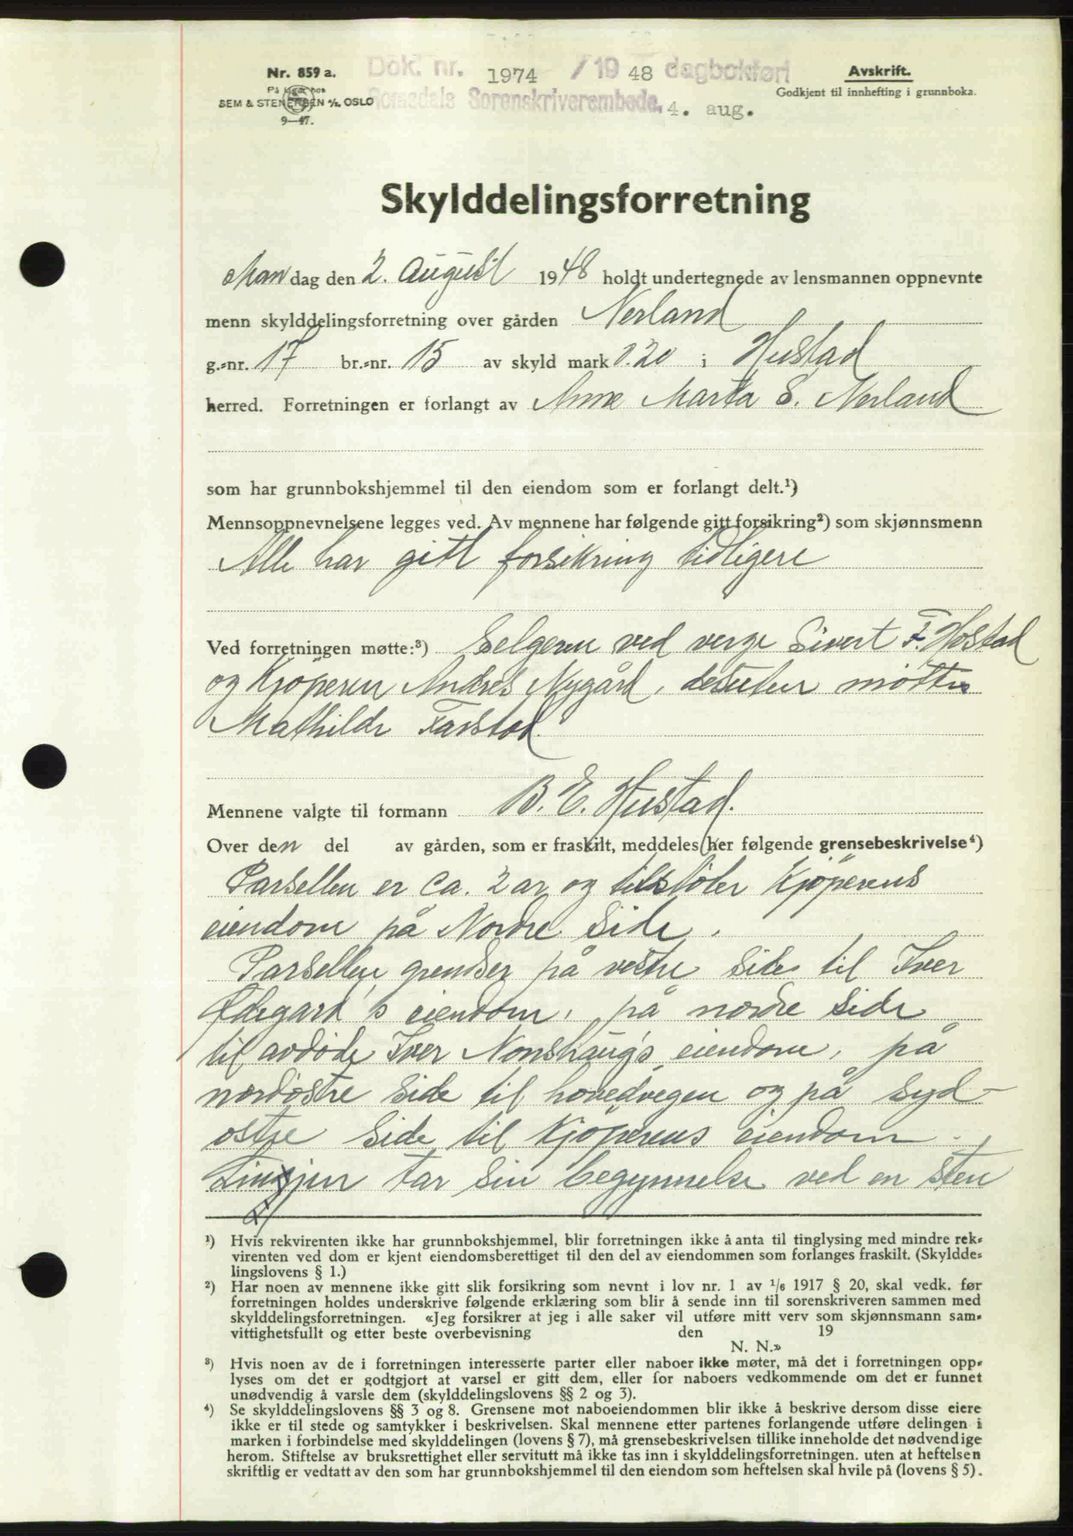 Nr. 859 a.
På lager hos
SEM & STENERSEN A/S, OSLO
9—47.
Dok. nr. 1974 /19 48 dagbokført
Romsdals Sorenskriverembede, 4. aug.
Avskrift.
Godkjent til innhefting i grunnboka.
Skylddelingsforretning
Mandag den 2. August 1948 holdt undertegnede av lensmannen oppnevnte
menn skylddelingsforretning over gården Nerland
g.-nr. 17 br.-nr. 15 av skyld mark 0.20 i Hustad
herred. Forretningen er forlangt av Anne Marta S. Nerland
som har grunnbokshjemmel til den eiendom som er forlangt delt.¹)
Mennsoppnevnelsene legges ved. Av mennene har følgende gitt forsikring²) som skjønnsmenn
Alle har gitt forsikring tidligere
Ved forretningen møtte:³) Selgeren ved verge Sivert F. Hostad
og Kjöperen Andres Nygård, desuten mötte
Mathilde Farstad.
Mennene valgte til formann B. E. Hustad.
Over den del av gården, som er fraskilt, meddeles her følgende grensebeskrivelse⁴)
Parsellen er ca. 2 ar og tilstöter Kjöperens
eiendom på Nordre side.
Parsellen grendser på vestre side til Iver
Ødegard's eiendom, på nordre side
til avdöde Iver Nonshaug's eiendom, på
nordöstre side til hovedvegen og på syd-
östre side til Kjöperens eiendom.
Linjen tar sin begynnelse ved en sten
¹) Hvis rekvirenten ikke har grunnbokshjemmel, blir forretningen ikke å anta til tinglysing med mindre rek-
virenten ved dom er kjent eiendomsberettiget til den del av eiendommen som forlanges fraskilt. (Skyldde-
lingslovens § 1.)
²) Har noen av mennene ikke gitt slik forsikring som nevnt i lov nr. 1 av 1/6 1917 § 20, skal vedk. før
forretningen holdes underskrive følgende erklæring som blir å sende inn til sorenskriveren sammen med
skylddelingsforretningen. «Jeg forsikrer at jeg i alle saker vil utføre mitt verv som skjønnsmann sam-
vittighetsfullt og etter beste overbevisning den 19
N. N.»
³) Hvis noen av de i forretningen interesserte parter eller naboer ikke møter, må det i forretningen opp-
lyses om det er godtgjort at varsel er gitt dem, eller for naboers vedkommende om det er funnet
unødvendig å varsle dem (skylddelingslovens §§ 2 og 3).
⁴) Se skylddelingslovens §§ 3 og 8. Grensene mot naboeiendommen blir ikke å beskrive dersom disse eiere
ikke er til stede og samtykker i beskrivelsen. Skal mennene etter partenes forlangende utføre delingen i
marken i forbindelse med skylddelingen (lovens § 7), må grensebeskrivelsen tillike inneholde det nødvendige
herom. Stiftelse av bruksrettighet eller servitutt må ikke tas inn i skylddelingsforretningen. uten at heftelsen
skriftlig er vedtatt av den som har grunnbokshjemmel til den eiendom som heftelsen skal hvile på (lovens § 5).